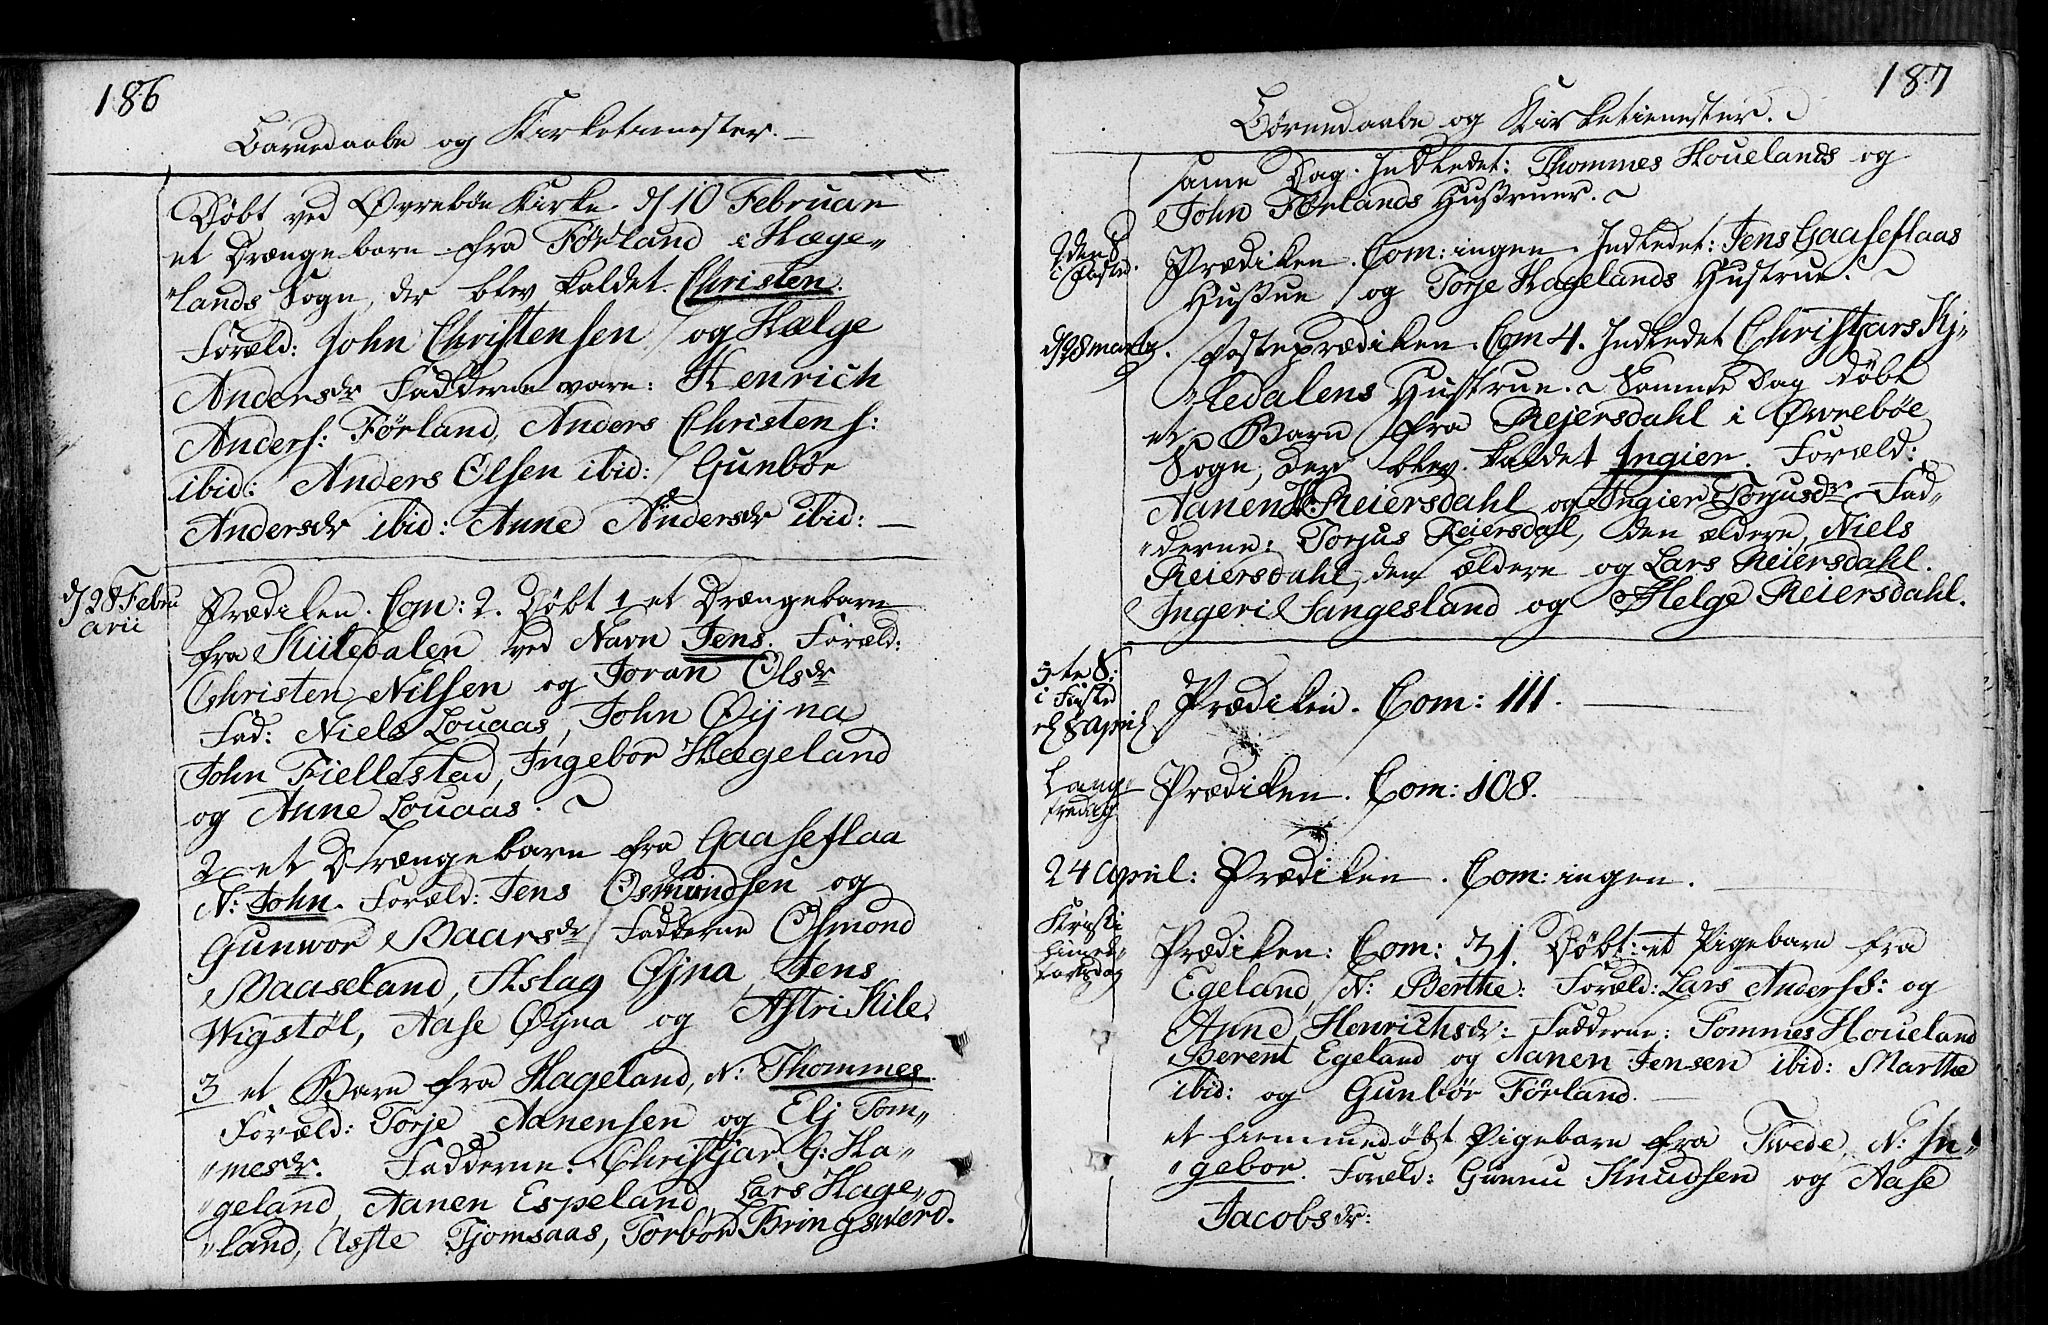 186
Barnedaabe og Kirketienester.
Døbt ved Øvrebøe Kirke d/ 10 Februar
et Drængebarn fra Førland i Hæge„
„lands Sogn, der blev kaldet Christen.
Foræld: John Christensen og Hælge
Andersdr Fadderne vare: Henrich
Anders: Førland, Anders Christens:
ibid: Anders Olsen ibid: Gunbør
Andersdr ibid: Anne Andersdr ibid: —
d/ 28 Febru
arii
Prædiken. Com: 2. Døbt 1 et Drængebarn
fra Kiiledalen ved Navn Jens. Foræld:
Christen Nilsen og Joran Olsdr
Fad: Niels Louaas, John Øijna
John Fiellestad, Ingebor Hægeland
og Anne Louaas.
2 et Drængebarn fra Gaaseflaa
N: John. Foræld: Jens Osmundsen og
Gunwor Baarsdr Fadderne Osmond
Baaseland, Aslag Øjna, Jens
Wigstøl, Aase Øijna og Astri Kile.
3 et Barn fra Hageland, N: Thommes.
Foræld: Torje Aanensen og Elj Tom„
„mesdr. Fadderne. Christjar G: Ha„
„geland, Aanen Espeland, Lars Hage„
„land, Aaste Tjomsaas, Torbør Bringswerd.
187
Børnedaabe og Kirketienester.
same Dag. Indledet: Thommes Houelands og
John Førlands Hustruer.
2den S
i Faste.
Prædiken. Com: ingen. Indledet: Jens Gaaseflaas
Hustrue og Torje Hagelands Hustrue.
d/ 28 marty.
Fasteprædiken. Com 4. Indledet Christjars Kj„
„ledalens Hustrue. Samme Dag døbt
et Barn fra Rejersdahl i Øvrebøe
Sogn, der blev kaldet Ingier. Foræld:
Aanen Reiersdahl og Ingier Torjusdr Fad„
„derne: Torjus Reiersdahl, den ældere, Niels
Reiersdahl, den ældere og Lars Reiersdahl.
Ingeri Langesland og Helge Reiersdahl.
5te S:
i Faste
d/ 8 April
Prædiken. Com: 111.
Lang„
fredag
Prædiken. Com: 108.
24 April: Prædiken. Com: ingen.
Kristi
himel„
fartsdag
Prædiken: Com: 31. Døbt: et Pigebarn fra
Egeland, N: Berthe: Foræld: Lars Anders: og
Anne Henrichsdr: Fadderne: Tommes Houeland
Berent Egeland og Aanen Jensen ibid: Marthe
ibid: og Gunbør Førland.
et hiemmedøbt Pigebarn fra Twede, N: In„
„gebor. Foræld: Gunnu Knudsen og Aase
Jacobsdr: